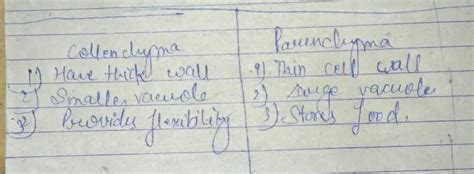 Collenchyma    Parenchyma
1) Have thick wall    1) Thin cell wall
2) Smaller vacuole    2) Large vacuole
3) Provides flexibility    3) Stores food.